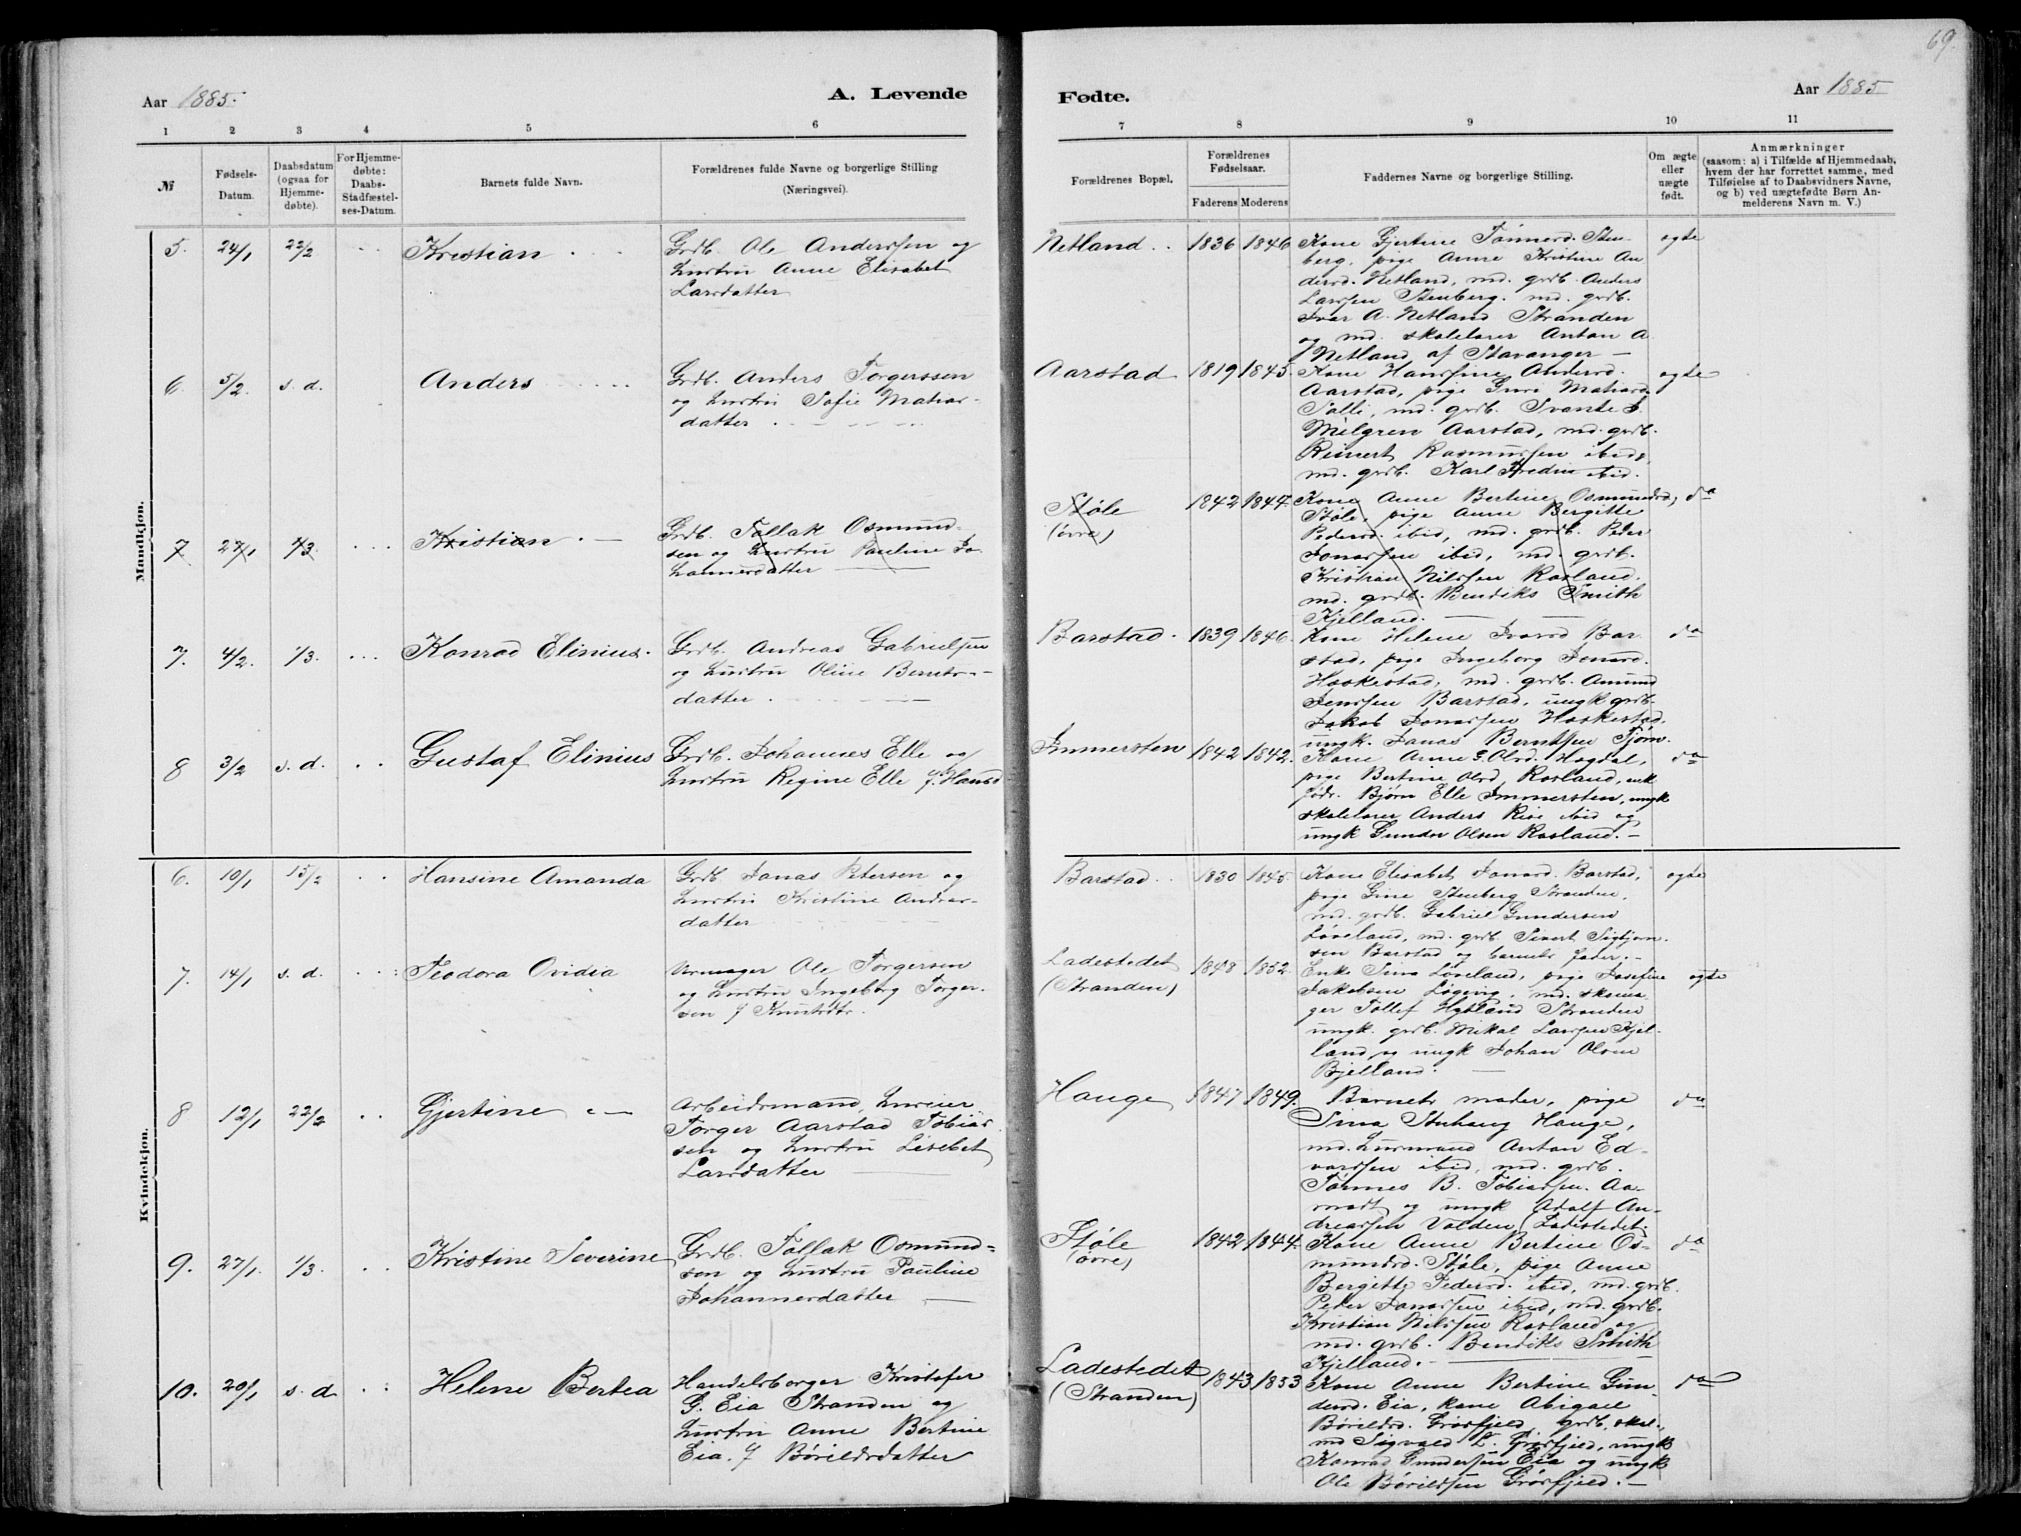 69.
Aar 1885.
A. Levende
Fødte.
Aar 1885
1 2 3 4 5 6
7 8 9 10 11
№
Fødsels-
Datum.
Daabsdatum
(ogsaa for
Hjemme-
døbte).
For Hjemme-
døbte:
Daabs-
Stadfæstel-
ses-Datum.
Barnets fulde Navn.
Forældrenes fulde Navne og borgerlige Stilling
(Næringsvei).
Forældrenes Bopæl.
Forældrenes
Fødselsaar.
Faderens Moderens
Faddernes Navne og borgerlige Stilling.
Om ægte
eller
uægte
født.
Anmærkninger
(saasom: a) i Tilfælde af Hjemmedaab,
hvem der har forrettet samme, med
Tilføielse af to Daabsvidners Navne,
og b) ved uægtefødte Børn An-
melderens Navn m. V.)
Mandkjøn.
5. 24/1 22/2 Kristian
Grdb. Ole Anderssen og
hustru Anne Elisabet
Larsdatter
Netland 1836 1846
Kone Gjertine Tønnesd. Sten-
berg, pige Anne Kristine An
dersd. Netland, md. grdb. Anders
Larssen Stenberg. md. grdb.
Ivar A. Netland Stranden
og md. skolelærer Anton A.
Netland af Stavanger —
ægte
6. 5/2 s. d. Anders
Grdb. Anders Torgerssen
og hustru Sofie Matias-
datter
Aarstad 1819 1845.
Kone Hansine Andersd.
Aarstad, pige Guri Matiasd.
Salli, md. grdb. Svante
Milgren Aarstad, md. grdb.
Reinert Rasmussen ibid,
md. grdb. Karl Fredin ibid.
ægte
7 27/1 1/3 Kristian
Grdb. Tollak Osmund-
sen og hustru Pauline Jo-
hannesdatter
Støle
(øvre)
1842 1844.
Kone Anne Bertine Osmundsd,
Støle, pige Anne Bergitte
Pedersd. ibid, md. grdb. Peder
Jonassen ibid, md. grdb.
Kristian Nilssen Rosland.
md. grdb. Bendiks Smith
Kjelland.
do
7. 4/2. 1/3. Konrad Elinius.
Grdb. Andreas Gabrielsen
og hustru Oline Bernts-
datter
Barstad 1839 1846.
Kone Helene Ivarsd Bar
stad, pige Ingeborg Jonasd.
Haskestad, md. grdb. Amund
Jenssen Barstad, ungk grdb.
Jakob Jonassen Haskestad,
ungk. Jonas Berntsen Tjørn.
do
8 3/2 s. d. Gustaf Elinius
Grdb. Johannes Elle og
hustru Regine Elle f. Hansd
Immersten 1842 1842.
Kone Anne G. Olsd. Hogdal,
pige Bertine Olsd, Rosland, enk
fødr. Bjørn Elle Immersten, ungk
skolelærer Anders Rise ibid og
ungk Gunder Olsen Rosland. —
do
Kvindekjøn.
6. 10/1 15/2 Hansine Amanda
Grdb. Jonas Petersen og
hustru Kristine Andreas-
datter
Barstad 1830 1845.
Kone Elisabet Jonasd. Barstad,
pige Gine Stenberg Stranden,
md. grdb. Gabriel Gundersen
Løveland, md. grdb. Sivert Sigbjørn-
sen Barstad og barnets fader. —
ægte
7. 14/1 s. d. Teodora Ovidia
Vormager Ole Torgersen
og hustru Ingeborg Torger-
sen f Knutsdtr.
Ladestedet
(Stranden)
1848 1852.
Enke Sina Løveland, pige Josefine
Jakobsen Løgevig, md. skoma
ger Tollef Hybland Stranden
ungk. grdb. Mikal Larssen Kjel-
land og ungk Johan Olsen
Bjelland.
ægte
8 12/1 22/2 Gjertine
Arbeidsmand, husleier
Torger Aarstad Tobias
sen og hustru Lisebet
Larsdatter
Hauge 1847 1849.
Barnets moder, pige
Sina Stuhaug Hauge,
md. husmand Anton Ed-
vardsen ibid, md. grdb.
Tønnes B. Tobiassen. Aa-
modt og ungk Adolf An-
dreassen Valden Ladestedet.
do
9. 27/1. 1/3. Kristine Severine
Grdb. Tollak Osmund-
sen og hustru Pauline
Johannesdatter
Støle
(øvre)
1842 1844.
Kone Anne Bertine Os-
mundsd. Støle, pige Anne
Bergitte Pedersd. ibid, md. grdb.
Peder Jonassen ibid, md. grdb.
Kristian Nilssen Rosland og
md. grdb. Bendiks Smith
Kjelland.
do
10. 20/1 s. d Helene Bertea
Handelsborger Kristofer
G. Eia Stranden og
hustru Anne Bertine
Eia. f Bårildsdatter
Ladestedet
(Stranden)
1843 1853
Kone Anne Bertine Gun-
dersd. Eia, kone Abigael
Bårildsd. Grøsfjeld, grdb. skol.,
md Sigvald L. Grøsfjeld, ungk
Konrad Gundersen Eia og ungk
Ole Bårildsen Grøsfjeld. —
do